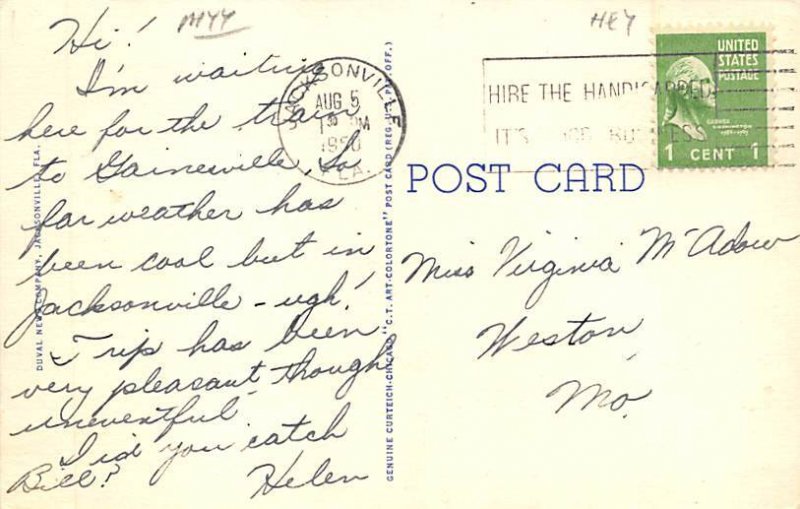 MYY
HEY
Hi!
I'm waiting
here for the train
to Gainesville. So
far weather has
been cool but in
Jacksonville - ugh!
Trip has been
very pleasant though
uneventful.
Did you catch
Bill? Helen
JACKSONVILLE
AUG 5
PM
1950
FLA.
HIRE THE HANDICAPPED
IT'S GOOD BUSINESS
UNITED
STATES
POSTAGE
GEORGE
WASHINGTON
1 CENT 1
POST CARD
Miss Virginia McAdow
Weston
Mo.
DUVAL NEWS COMPANY, JACKSONVILLE, FLA.
GENUINE CURTEICH-CHICAGO "C.T. ART-COLORTONE" POST CARD (REG. U.S. PAT. OFF.)